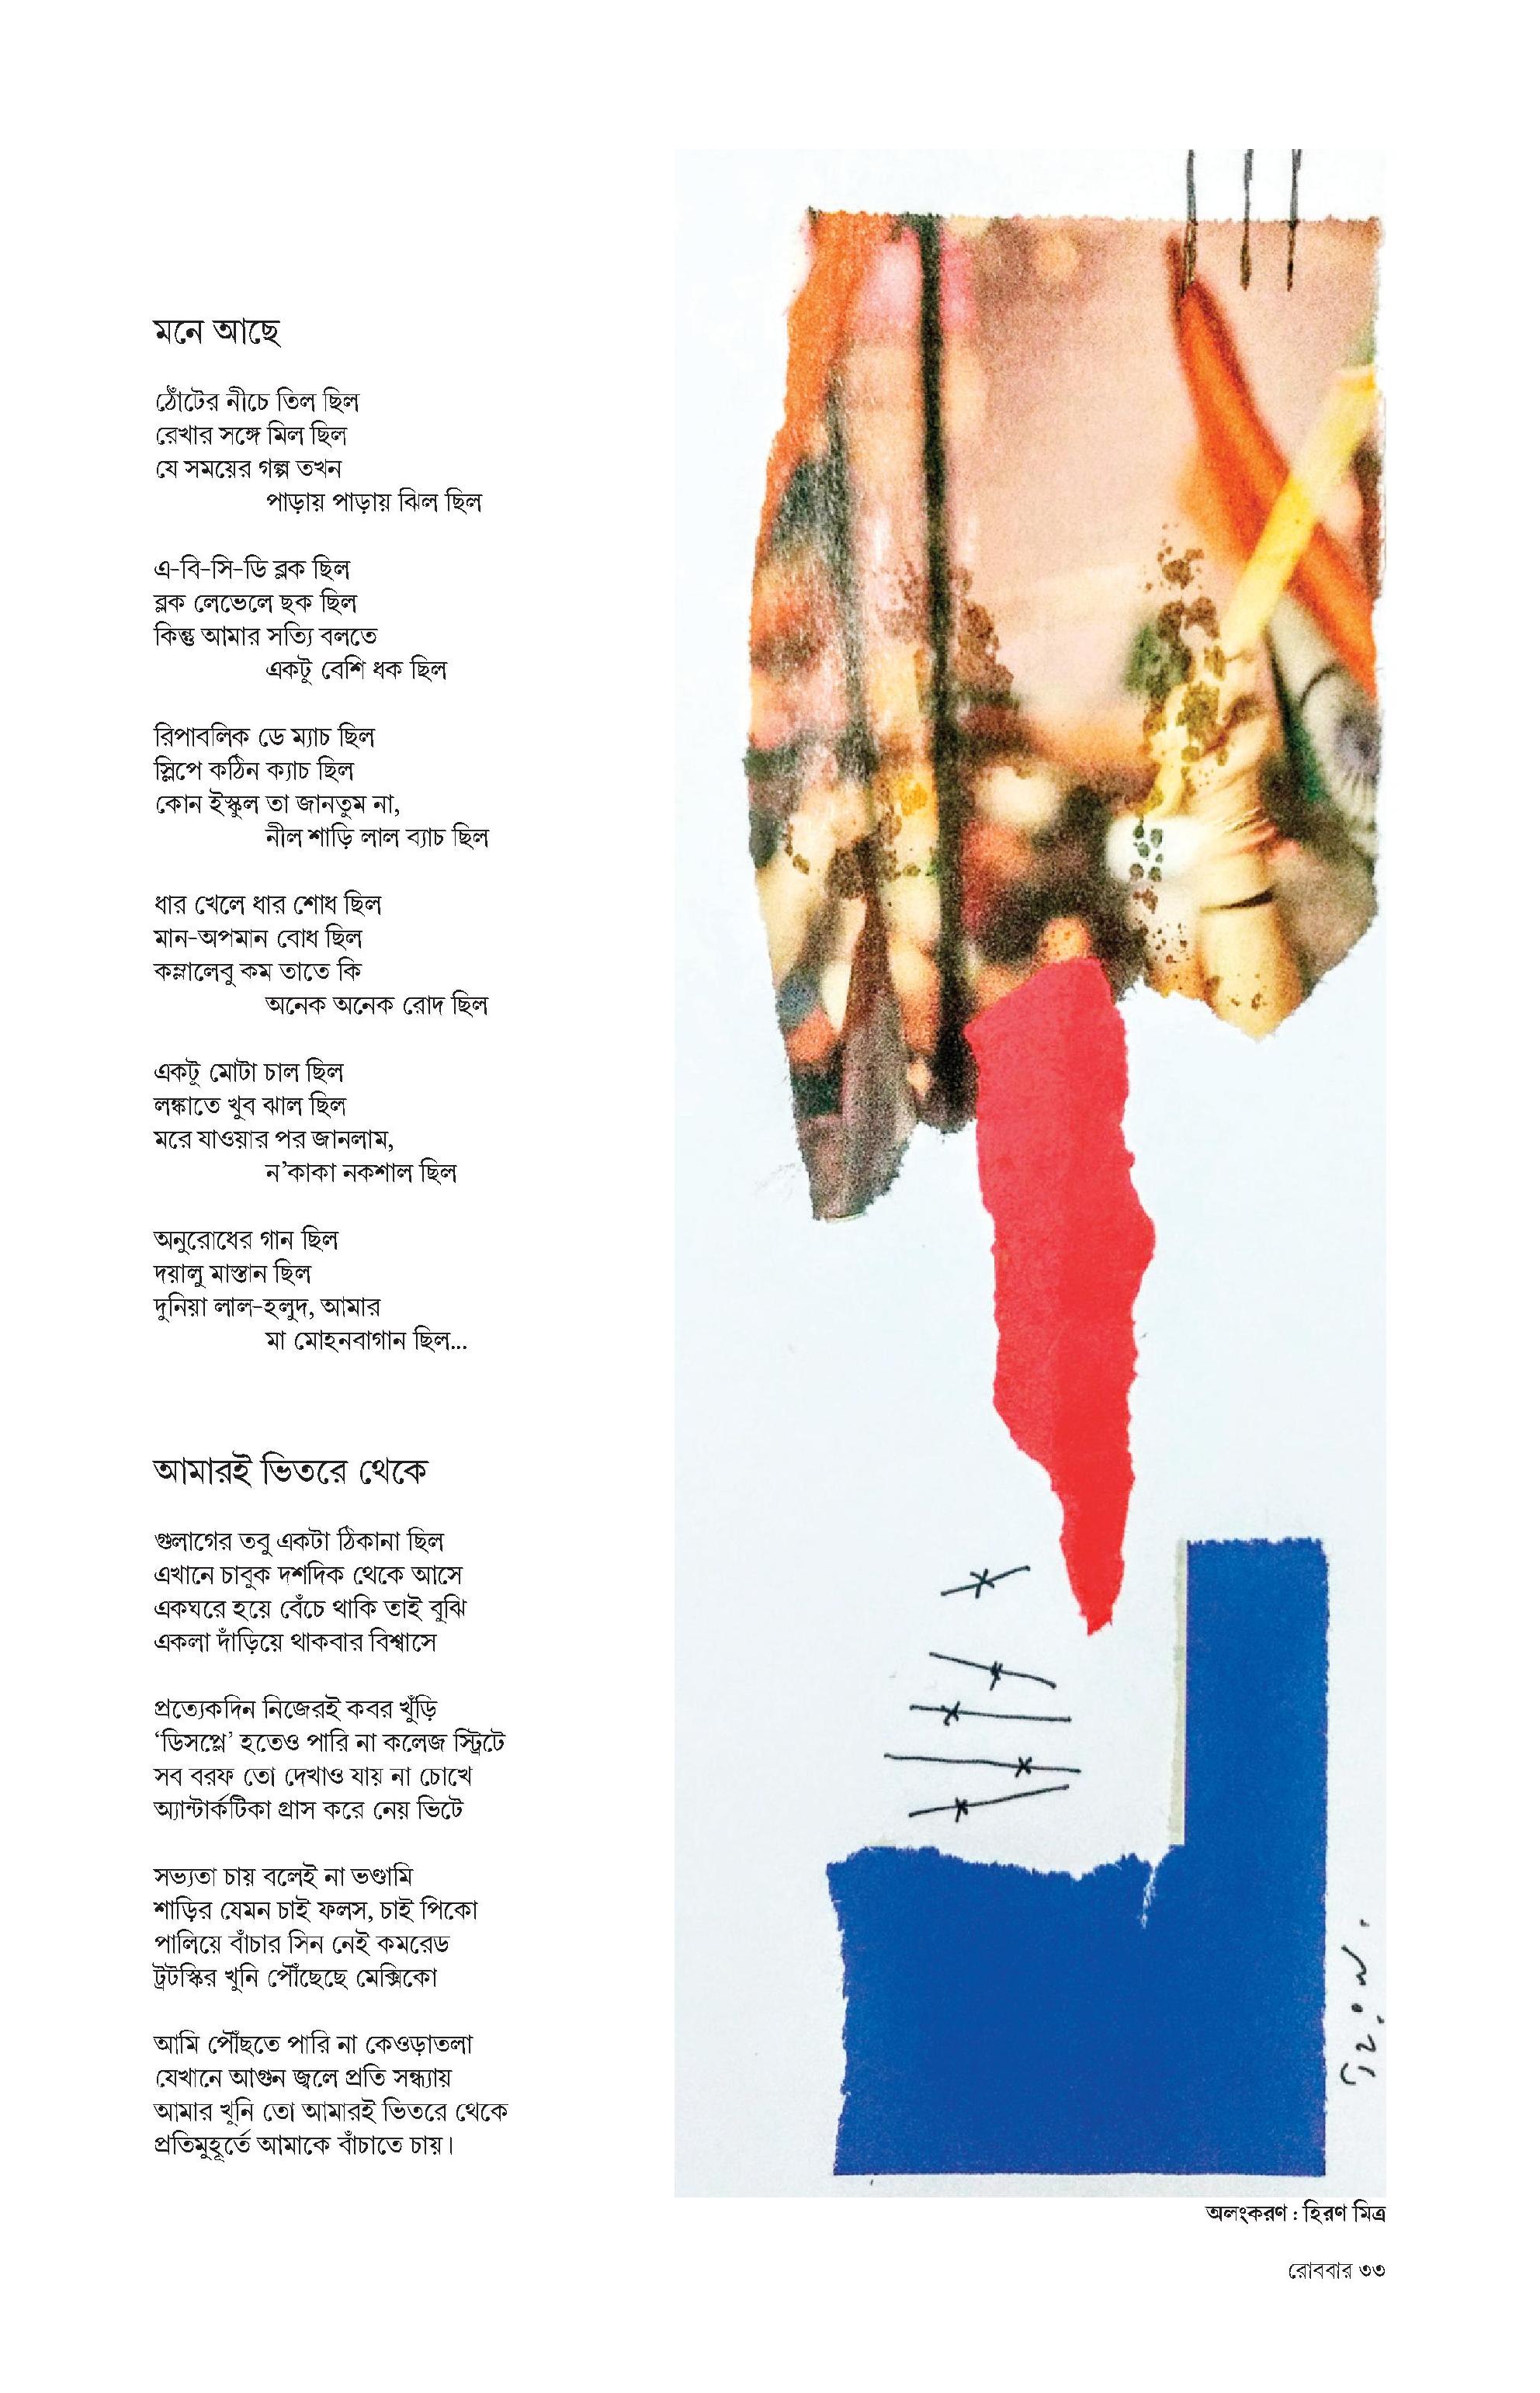 মনে আছে
ঠোঁটের নীচে তিল ছিল
রেখার সঙ্গে মিল ছিল
যে সময়ের গল্প তখন
পাড়ায় পাড়ায় ঝিল ছিল
এ-বি-সি-ডি ব্লক ছিল
ব্লক লেভেলে ছক ছিল
কিন্তু আমার সত্যি বলতে
একটু বেশি ধক ছিল
রিপাবলিক ডে ম্যাচ ছিল
স্লিপে কঠিন ক্যাচ ছিল
কোন ইস্কুল তা জানতুম না,
নীল শাড়ি লাল ব্যাচ ছিল
ধার খেলে ধার শোধ ছিল
মান-অপমান বোধ ছিল
কম্লালেবু কম তাতে কি
অনেক অনেক রোদ ছিল
একটু মোটা চাল ছিল
লঙ্কাতে খুব ঝাল ছিল
মরে যাওয়ার পর জানলাম,
ন’কাকা নকশাল ছিল
অনুরোধের গান ছিল
দয়ালু মাস্তান ছিল
দুনিয়া লাল-হলুদ, আমার
মা মোহনবাগান ছিল...
আমারই ভিতরে থেকে
গুলাগের তবু একটা ঠিকানা ছিল
এখানে চাবুক দশদিক থেকে আসে
একঘরে হয়ে বেঁচে থাকি তাই বুঝি
একলা দাঁড়িয়ে থাকবার বিশ্বাসে
প্রত্যেকদিন নিজেরই কবর খুঁড়ি
‘ডিসপ্লে’ হতেও পারি না কলেজ স্ট্রিটে
সব বরফ তো দেখাও যায় না চোখে
অ্যান্টার্কটিকা গ্রাস করে নেয় ভিটে
সভ্যতা চায় বলেই না ভণ্ডামি
শাড়ির যেমন চাই ফলস, চাই পিকো
পালিয়ে বাঁচার সিন নেই কমরেড
ট্রটস্কির খুনি পৌঁছেছে মেক্সিকো
আমি পৌঁছতে পারি না কেওড়াতলা
যেখানে আগুন জ্বলে প্রতি সন্ধ্যায়
আমার খুনি তো আমারই ভিতরে থেকে
প্রতিমুহূর্তে আমাকে বাঁচাতে চায়।
অলংকরণ : হিরণ মিত্র
রোববার ৩৩